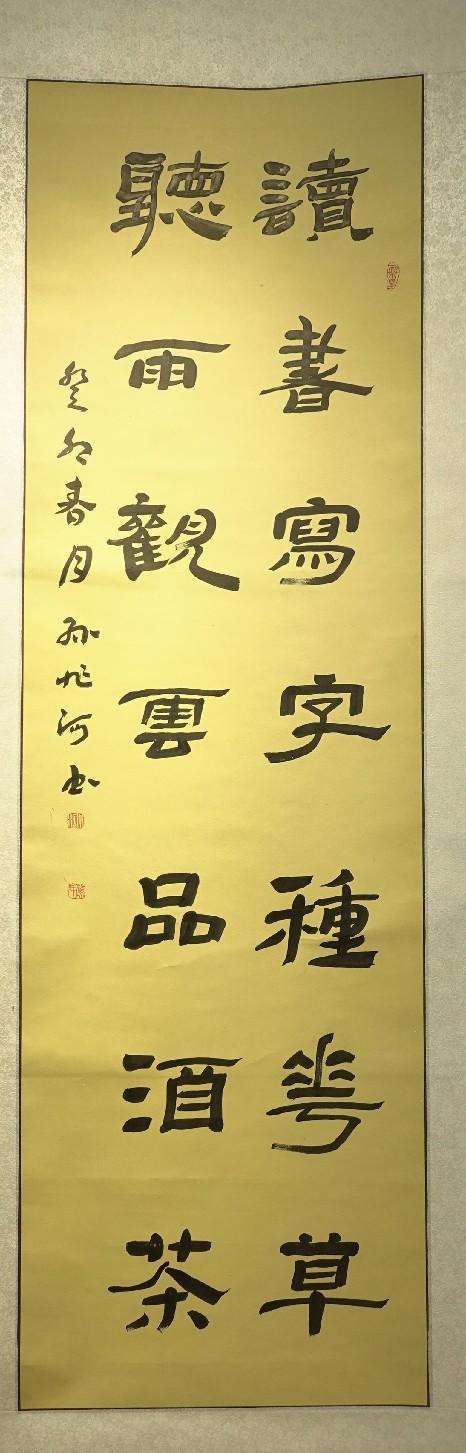 讀書寫字種花草
聽雨觀雲品酒茶
癸卯春月 孫兆河书